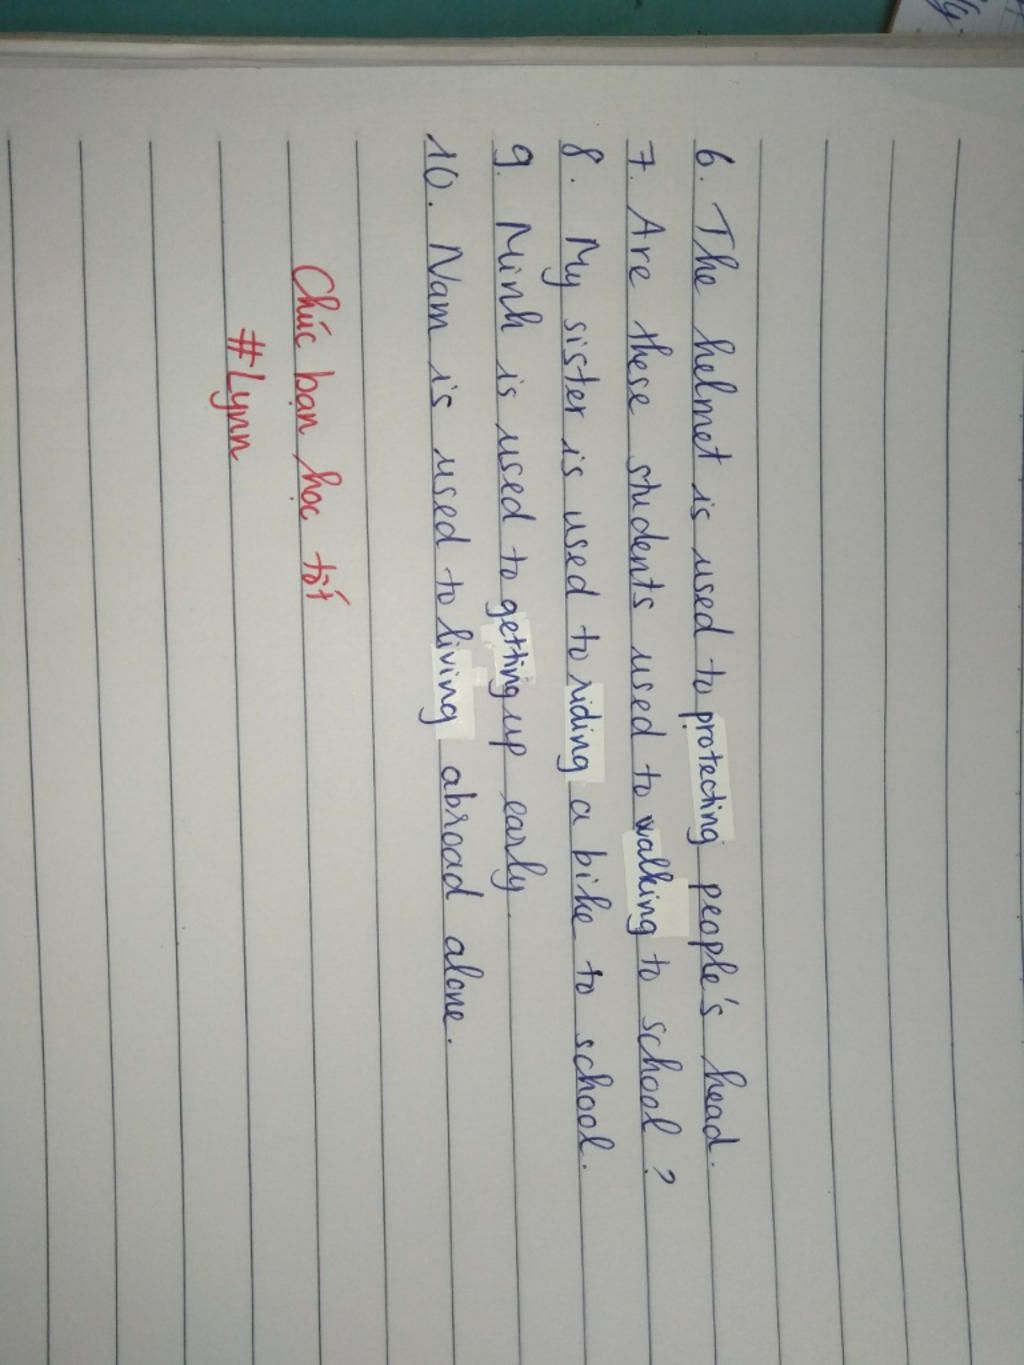 6. The helmet is used to protecting people's head.
7. Are these students used to walking to school?
8. My sister is used to riding a bike to school.
9. Minh is used to getting up early.
10. Nam is used to living abroad alone.
Chúc bạn học tốt
#Lynn